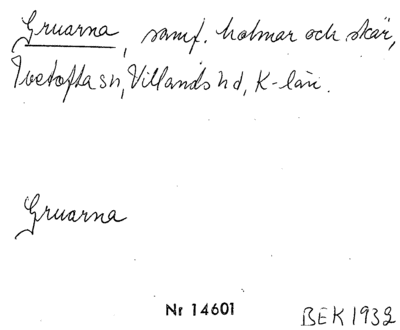 Gruarna, samf. holmar och skär,
Ivetofta sn, Villands hd, K-län.
Gruarna
Nr 14601
BEK 1932